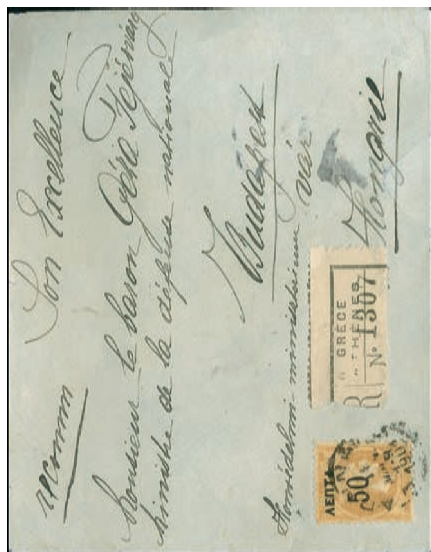 recomm
Son Excellence
Monsieur le baron Géza Fejérváry
Ministre de la défense nationale
Budapest
Honvédelmi minisztérium
vár
Hongrie
R
GRÈCE
ATHÈNES
No. 1307
ΛΕΠΤΑ
50